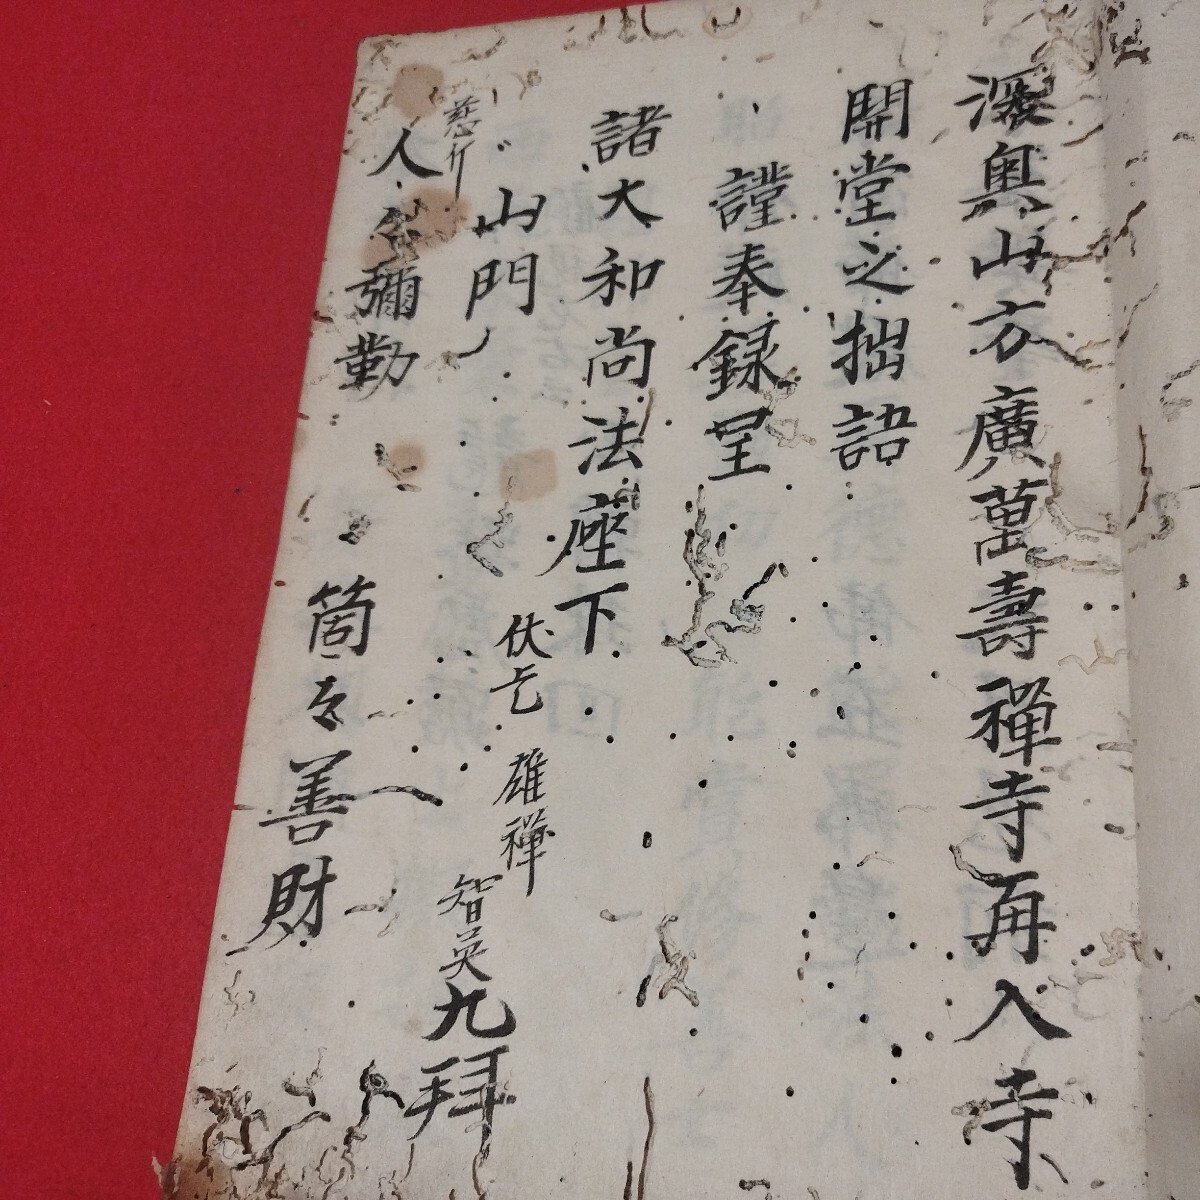 深奥山方廣萬壽禪寺再入寺
開堂之拙語
謹奉録呈
諸大和尚法座下
伏乞
雄禪
智英九拜
山門
人々彌勒
箇々善財